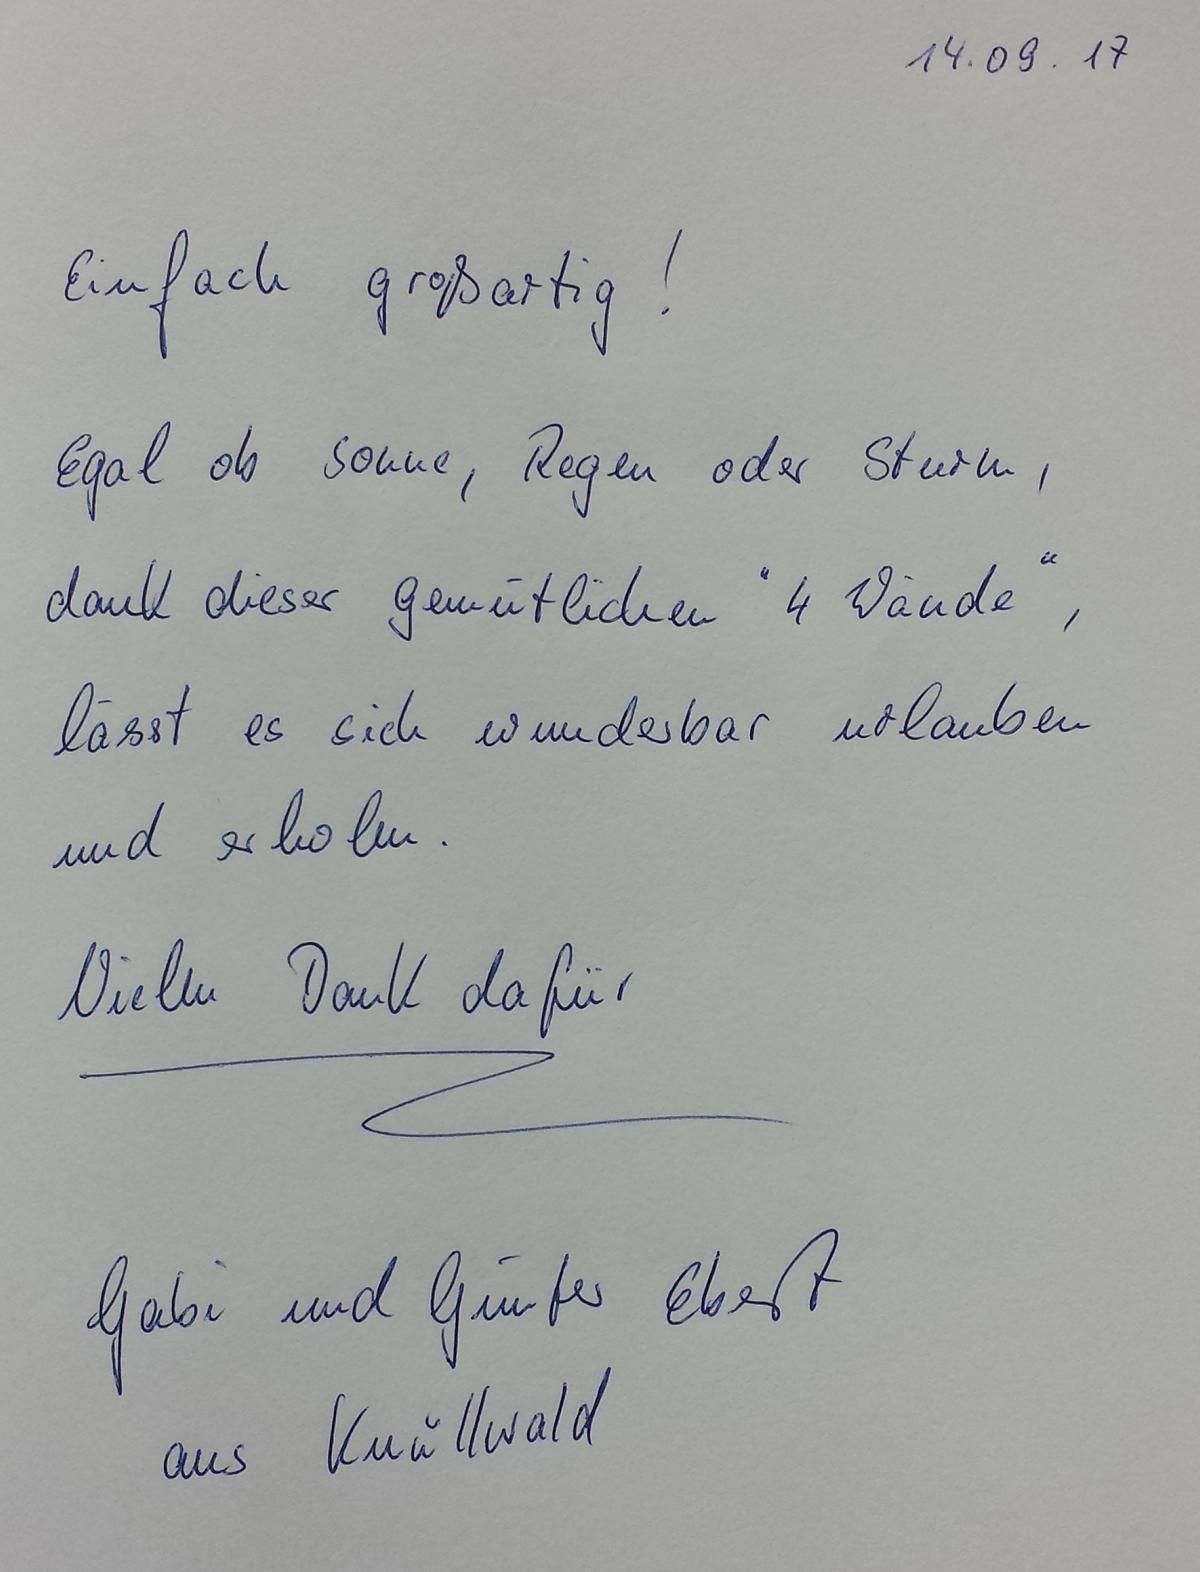 14.09.17
Einfach großartig!
Egal ob Sonne, Regen oder Sturm,
dank dieser gemütlichen "4 Wände",
lässt es sich wunderbar urlauben
und erholen.
Vielen Dank dafür
Gabi und Günter Ebert
aus Knüllwald